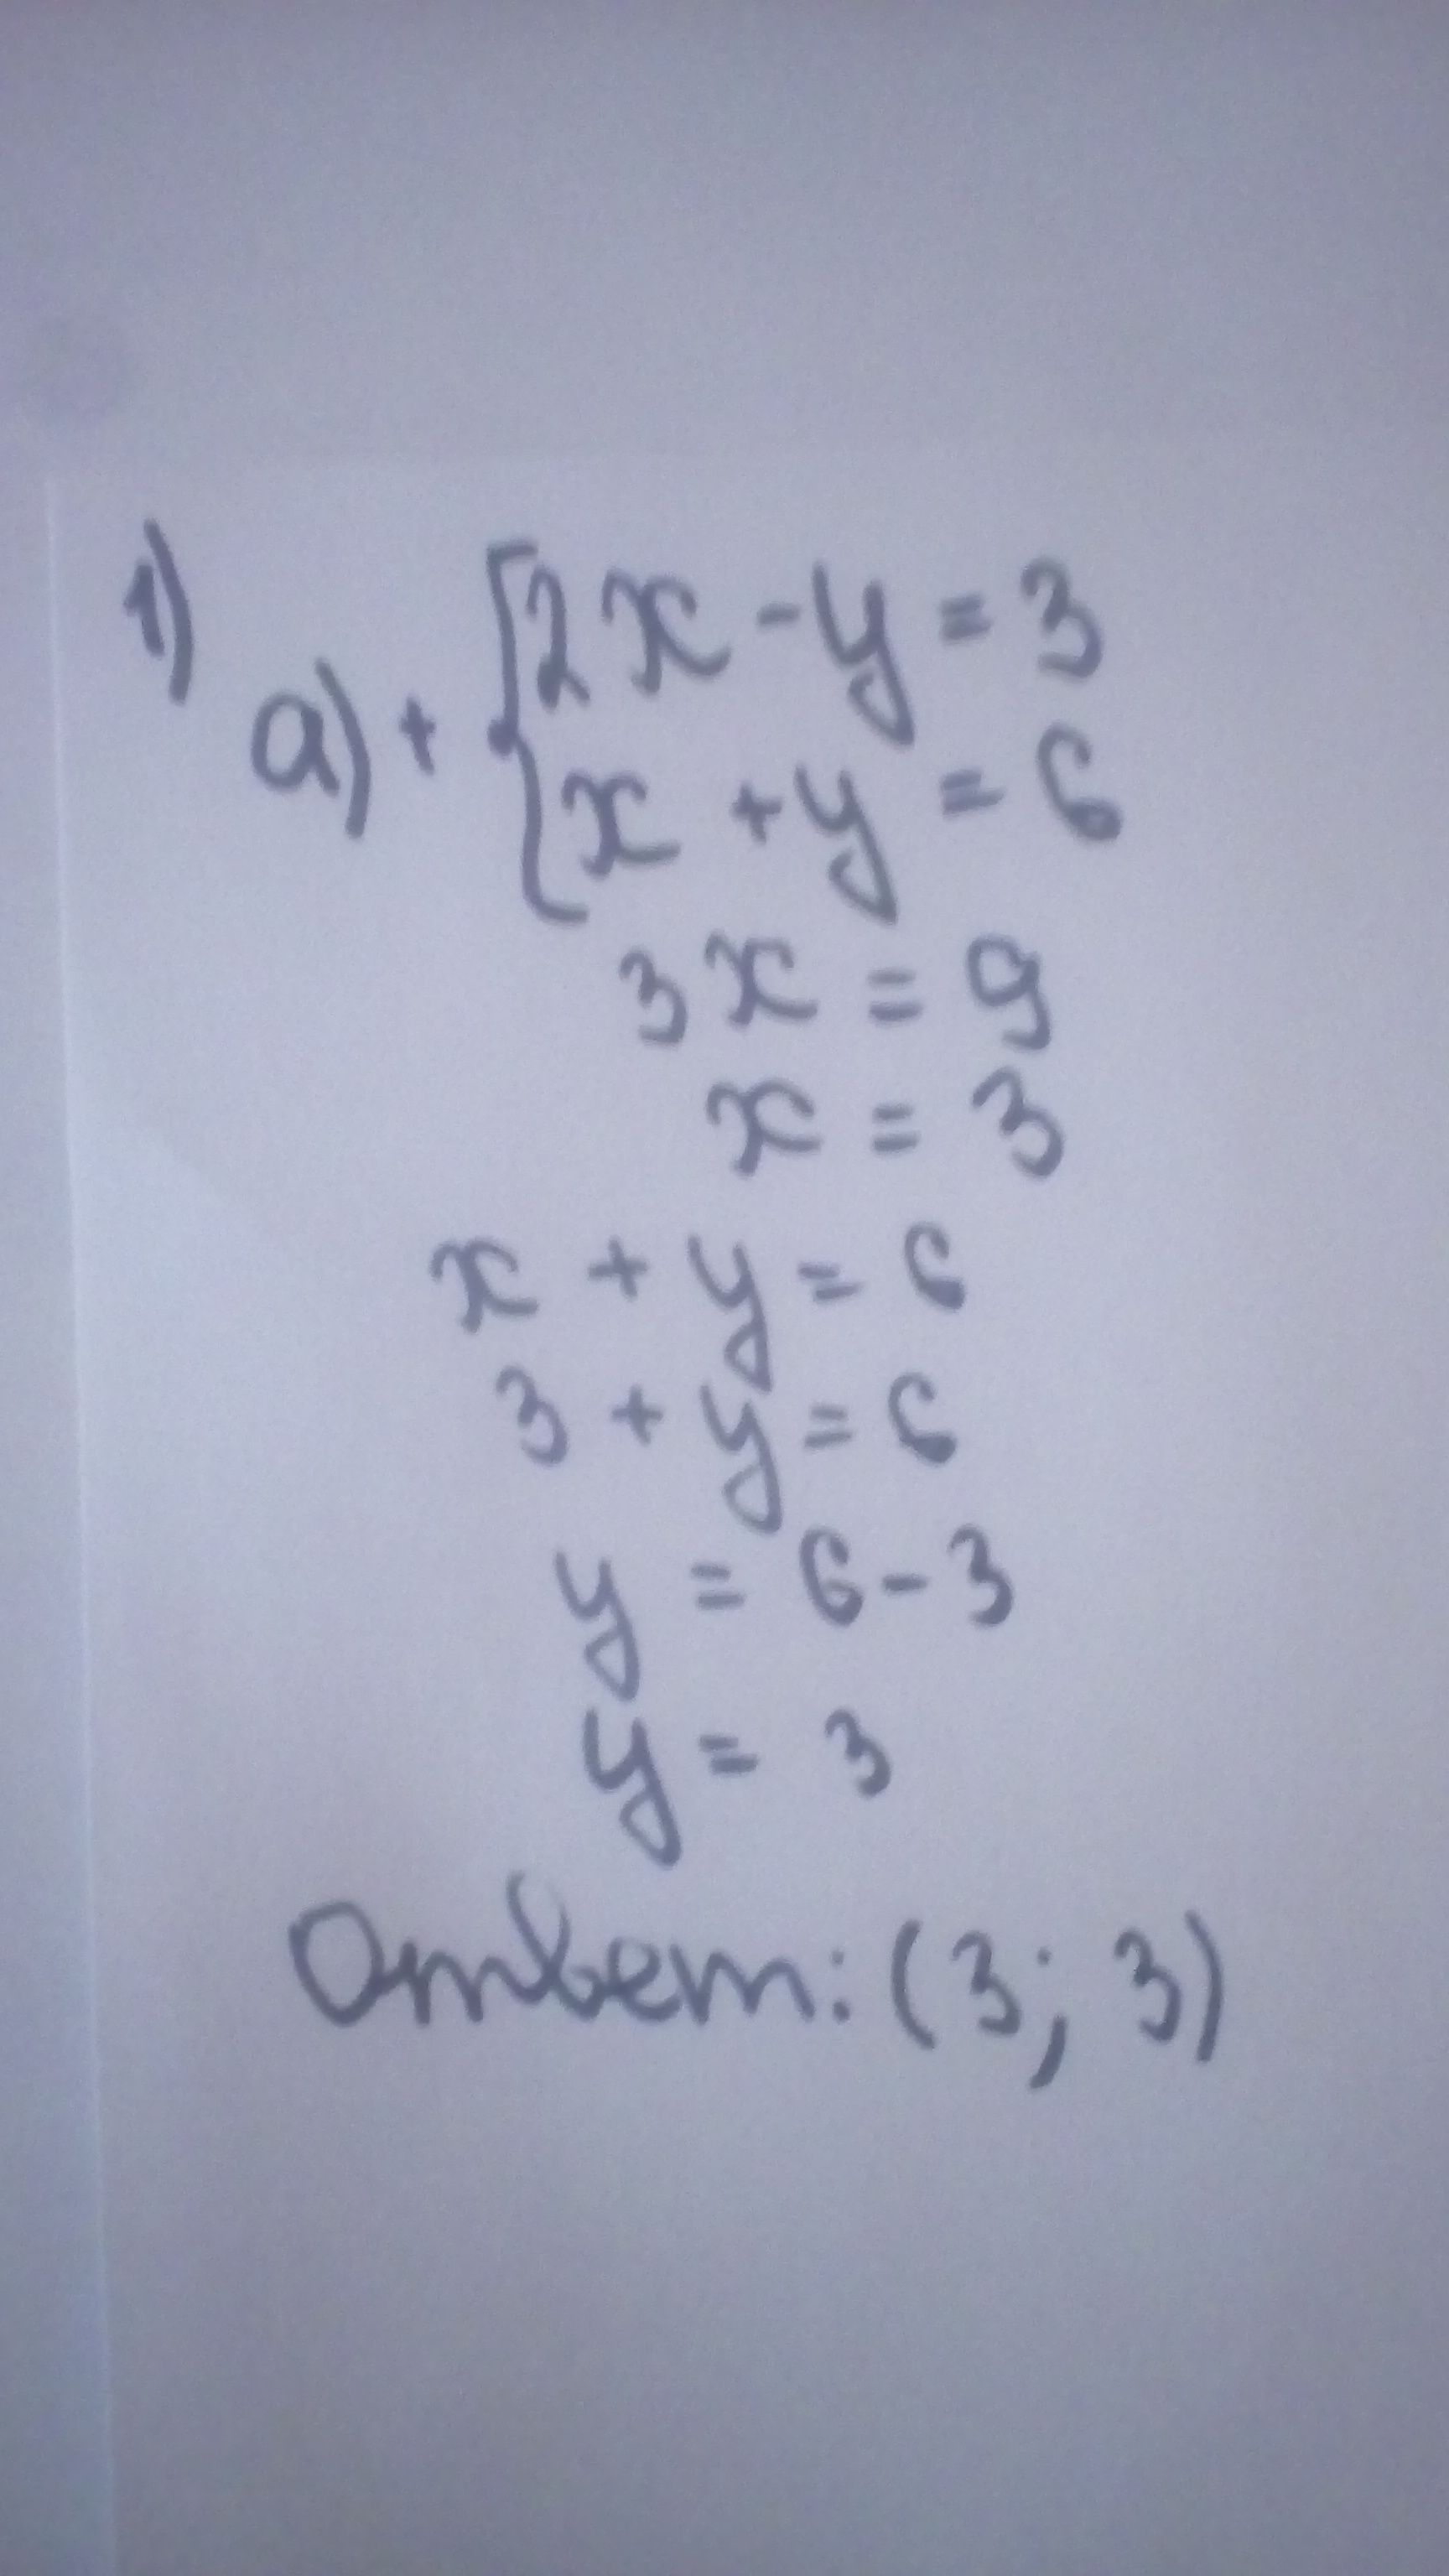 1)
a) + { 2x - y = 3
x + y = 6
3x = 9
x = 3
x + y = 6
3 + y = 6
y = 6 - 3
y = 3
Ответ: (3; 3)